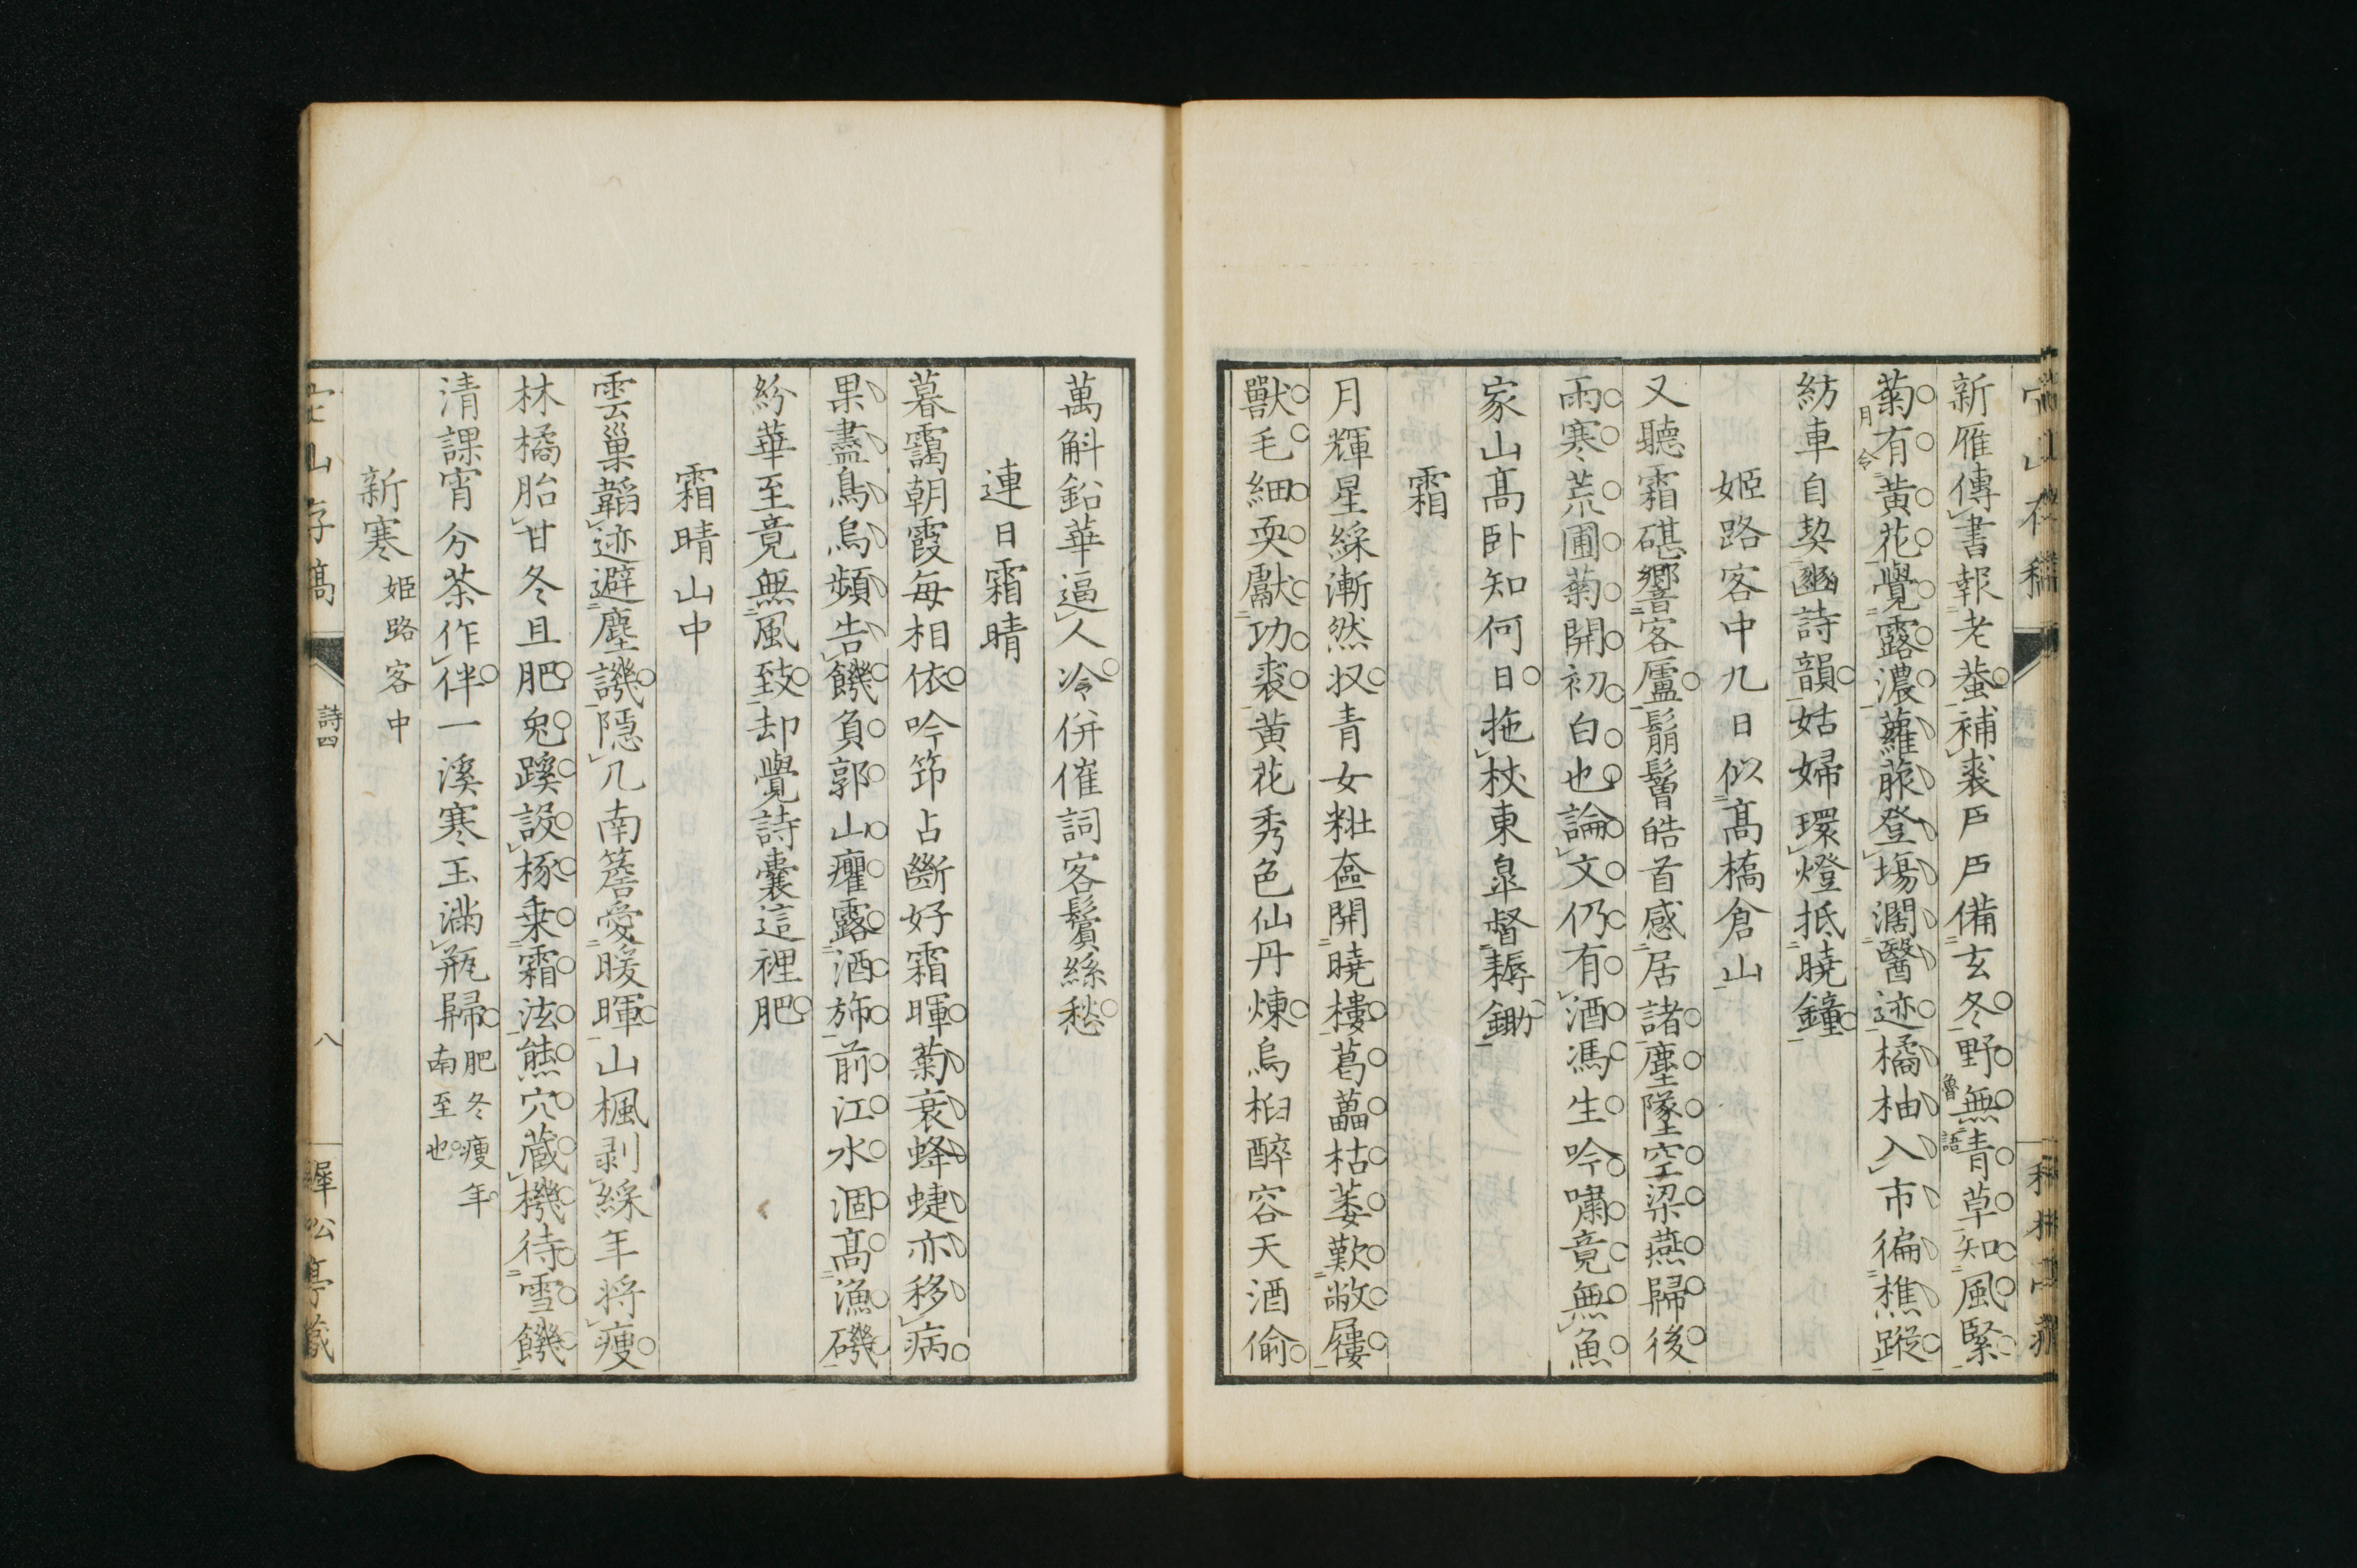 新雁傳書報老蛬補裘戶戶備玄冬野無青草知風緊
魯語
菊有黃花覺露濃蘿蔙登場濶醫迹橘柚入市徧樵蹤
月令
紡車自契豳詩韻姑婦環燈抵曉鐘
姬路客中九日似髙橋倉山
又聽霜碪響客廬鬅鬙皓首感居諸塵墜空梁燕歸後
雨寒荒圃菊開初白也論文仍有酒馮生吟嘯竟無魚
家山髙卧知何日拖杖東皐督耨鋤
霜
月輝星綵漸然収青女粧奩開曉樓葛藟枯萎歎敝屨
獸毛細耎獻功裘黃花秀色仙丹煉烏桕醉容天酒偷
萬斛鉛華逼人冷併催詞客鬢絲愁
連日霜晴
暮靄朝霞每相依吟筇占斷好霜暉菊衰蜂蜨亦移病
果盡鳥烏頻告饑負郭山癯露酒斾前江水涸髙漁磯
紛華至竟無風致却覺詩囊這裡肥
霜晴山中
雲巢韜迹避塵譏隱几南簷愛暖暉山楓剥綵年将瘦
林橘胎甘冬且肥兔蹊設椓乗霜法熊穴蔵機待雪饑
清課宵分茶作伴一溪寒玉滿瓶歸
肥冬瘦年
南至也
新寒
姬路客中
山存稿
詩四
八
犀公亭蔵